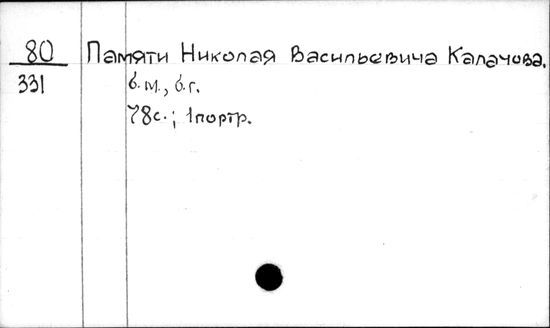 80 Памяти Николая Васильевича Калачова.
331 б.м., б.г.
78с.; 1портр.